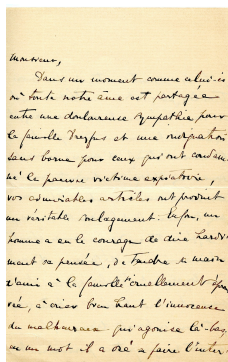 Monsieur,
Dans un moment comme celui-ci
où toute notre âme est partagée
entre une douloureuse sympathie pour
la famille Dreyfus et une indignation
sans borne pour ceux qui ont condam-
né la pauvre victime expiatoire,
vos admirables articles ont produit
un véritable soulagement. Enfin, un
homme a eu le courage de dire hardi-
ment sa pensée, de tendre la main
d'ami à la famille cruellement éprou-
vée, à crier bien haut l'innocence
du malheureux qui agonise là-bas,
en un mot il a osé